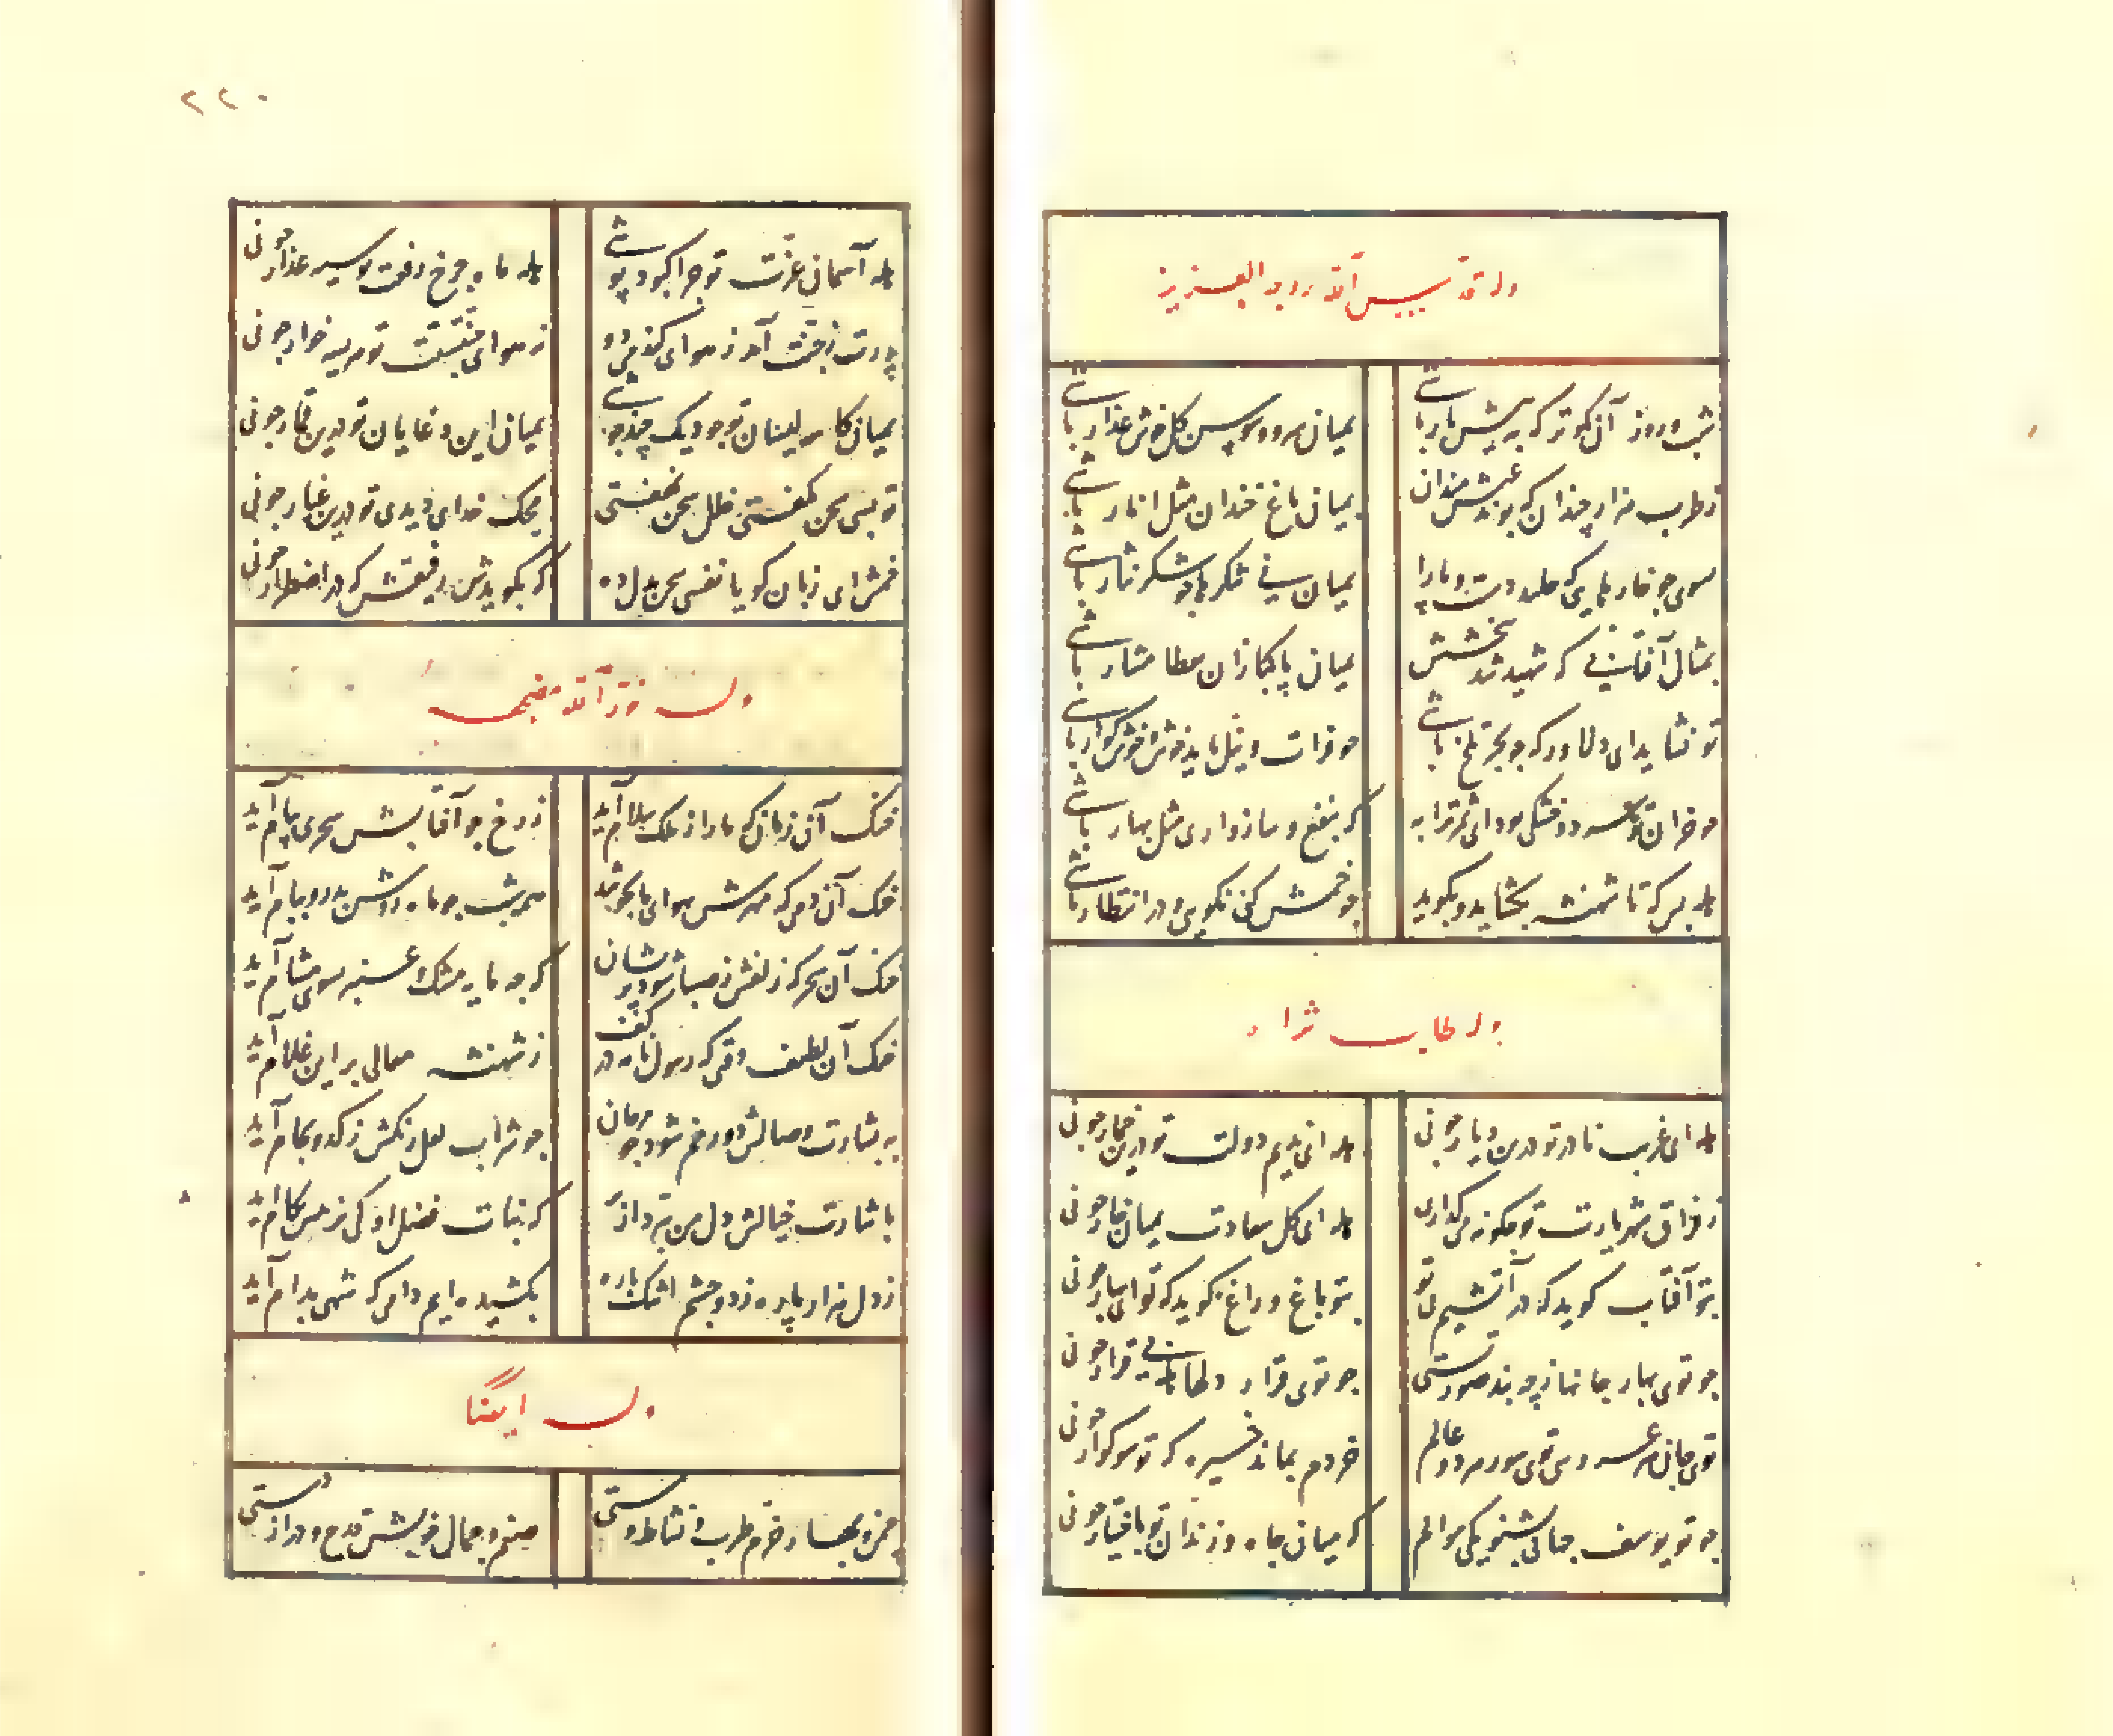 وله قدس الله روحه العزیز
شب و روز آن نکوتر که به پیش یار باشی
بمیان سرو و سوسن گل خوش عذار باشی
بطرب هزار چندان که بوند عیش مندان
بمیان باغ خندان مثل انار باشی
سوی جو خارهایی که خلد دست و پا را
بمیان نی شکرها چو شکر نثار باشی
بمثال آفتابی که شهید شد بخشش
بمیان پاکبازان بعطا مشار باشی
تو نشاید ای دلاور که چو بحر تلخ باشی
چو فرات و نیل باید خوش و خوش‌گوار باشی
که بنفع و سازواری مثل بهار باشی
هله بس که تا شهنشه بگشاید و بگوید
چو خمش کنی نگویی و در انتظار باشی
وله طاب ثراه
هله ای غریب نادر تو درین دیار چونی
هله ای ندیم دولت تو درین خمار چونی
ز فراق شهریارت تو چگونه می‌گذاری
هله ای گل سعادت بمیان خار چونی
بتو آفتاب گوید که در آتشیم بی تو
بتو باغ و راغ گوید که تو ای بهار چونی
چو توی بهار جانها ز چه بند صورتستی
چو توی قرار دلها هله بی قرار چونی
توی جان هر عروسی توی سور هر دو عالم
خردم بماند خیره که تو سوگوار چونی
چو تو یوسف جمالی بشنو یکی سوالم
که میان چاه و زندان تو باختیار چونی
۲۲۰
هله آسمان عزت تو چرا کبود پوشی
هله ماه چرخ رفعت تو سیه عذار چونی
پدرت ز جنت آمد ز هوای گندمی دو
ز هوای جنتست تو هریسه خوار چونی
بمیان کاسه‌لیسان تو چو دیک چند جوشی
بمیان این دغایان تو درین قمار چونی
تو بسی سخن بگفتی خلل سخن نهفتی
محک خدای دیدی تو درین غبار چونی
خمش ای زبان گویا نفسی سخن بدل ده
که بگویدش رفیقش که در اضطرار چونی
وله نور الله مضجعه
خنک آن زمان که ما را ز ملک سلام آید
ز رخ چو آفتابش سحری پیام آید
خنک آن دمی که مهرش بهوای ما بجوشد
همه شب چو ماه روشن بدر و ببام آید
خنک آن سحر که زلفش ز صبا شود پریشان
که چه مایه مشک و عنبر سوی مشام آید
خنک آن لطیف وقتی که رسول نامه در کف
ز شهنشه معالی بر این غلام آید
به بشارت وصالش دو رخم شود چو مرجان
چو شراب لعل رنگش ز کدو بجام آید
باشارت خیالش دل من بپرد از تن
که نبات فضل او کی ز هوس بکام آید
ز دل هزار پاره ز دو چشم اشک باره
بکشیده‌ایم دامی که شهی بدام آید
وله ایضا
چمن و بهار خرم طرب و نشاط و مستی
صنم و جمال خویش قدح و دراز دستی